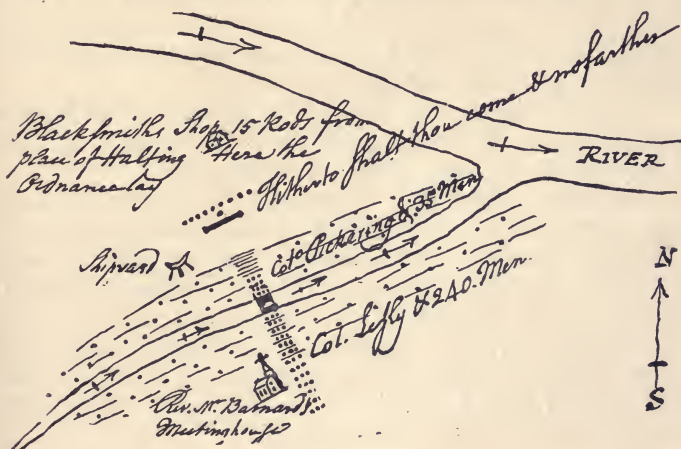 Blacksmiths Shop 15 Rods from
place of Halting Here the
Ordnance lay
Hitherto shalt thou come & no farther
RIVER
Shipyard
Col. Pickering & 35 Men
Col. & 240 Men
N
S
Rev. Mr. Barnard's
Meetinghouse